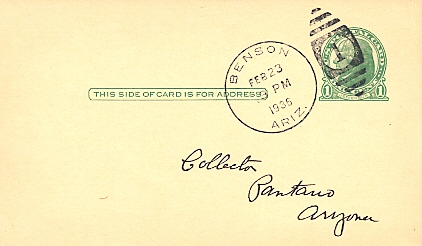 BENSON
FEB 23
PM
1936
ARIZ.
1
1 1
THIS SIDE OF CARD IS FOR ADDRESS
Collector
Pantano
Arizona